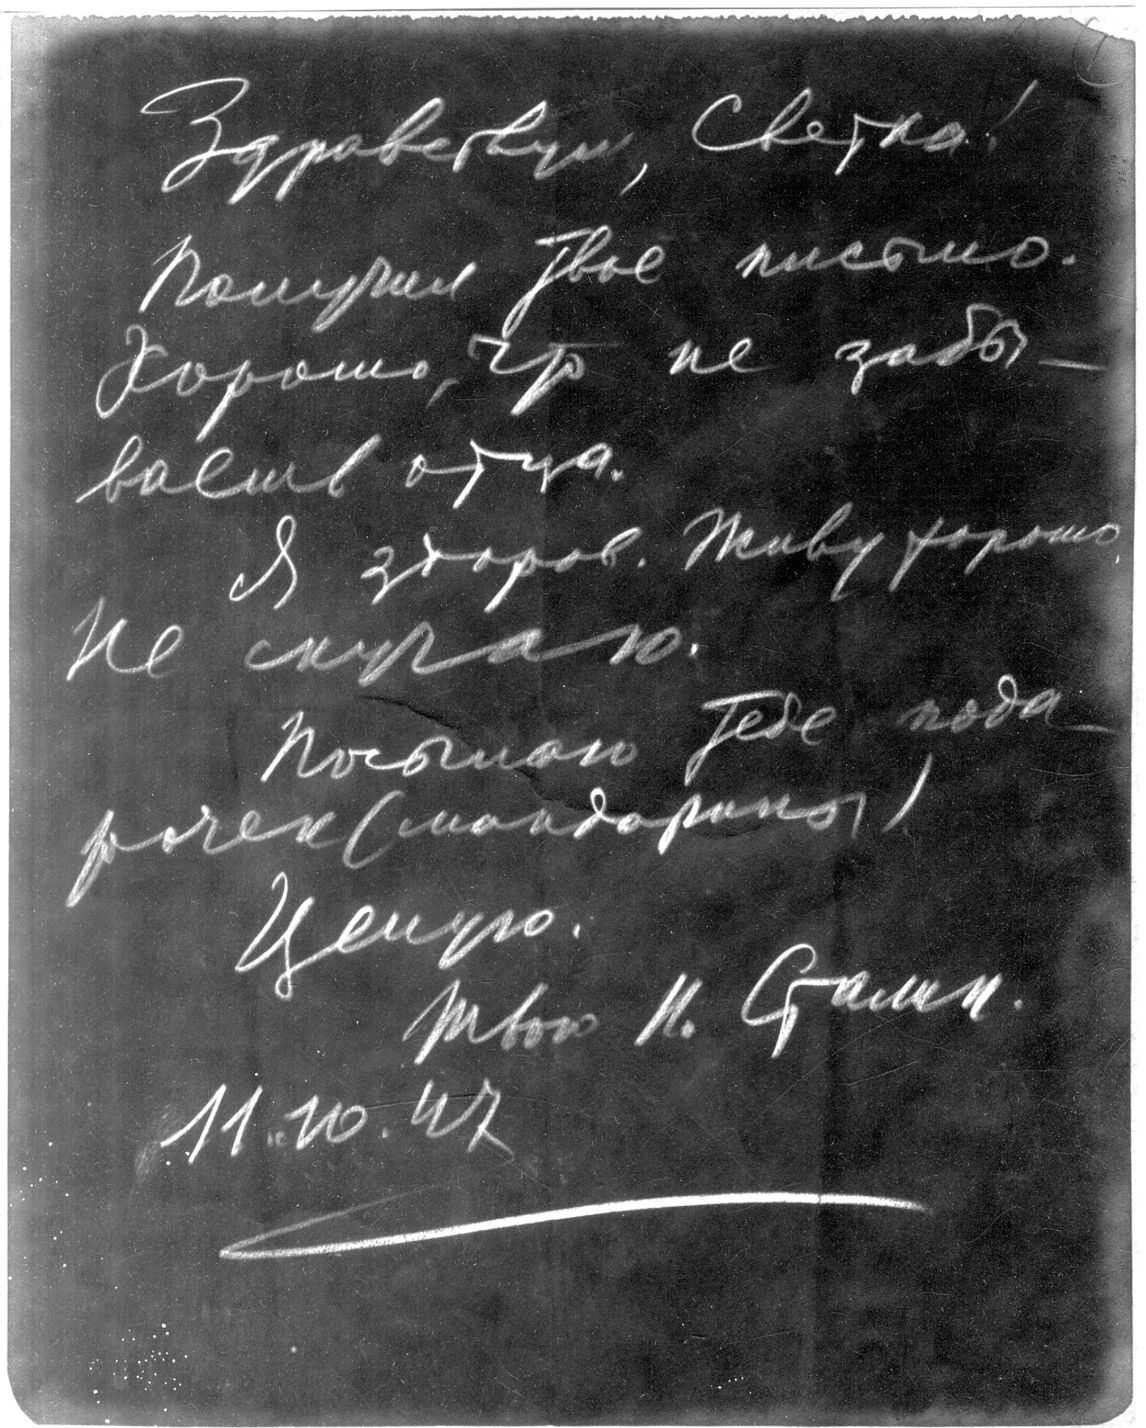 Здравствуй, Светка!
Получил твое письмо.
Хорошо, что не забы-
ваешь отца.
Я здоров. Живу хорошо,
Не скучаю.
Посылаю тебе пода-
рочек (мандарины)
Целую.
Твой И. Сталин.
11.10.47